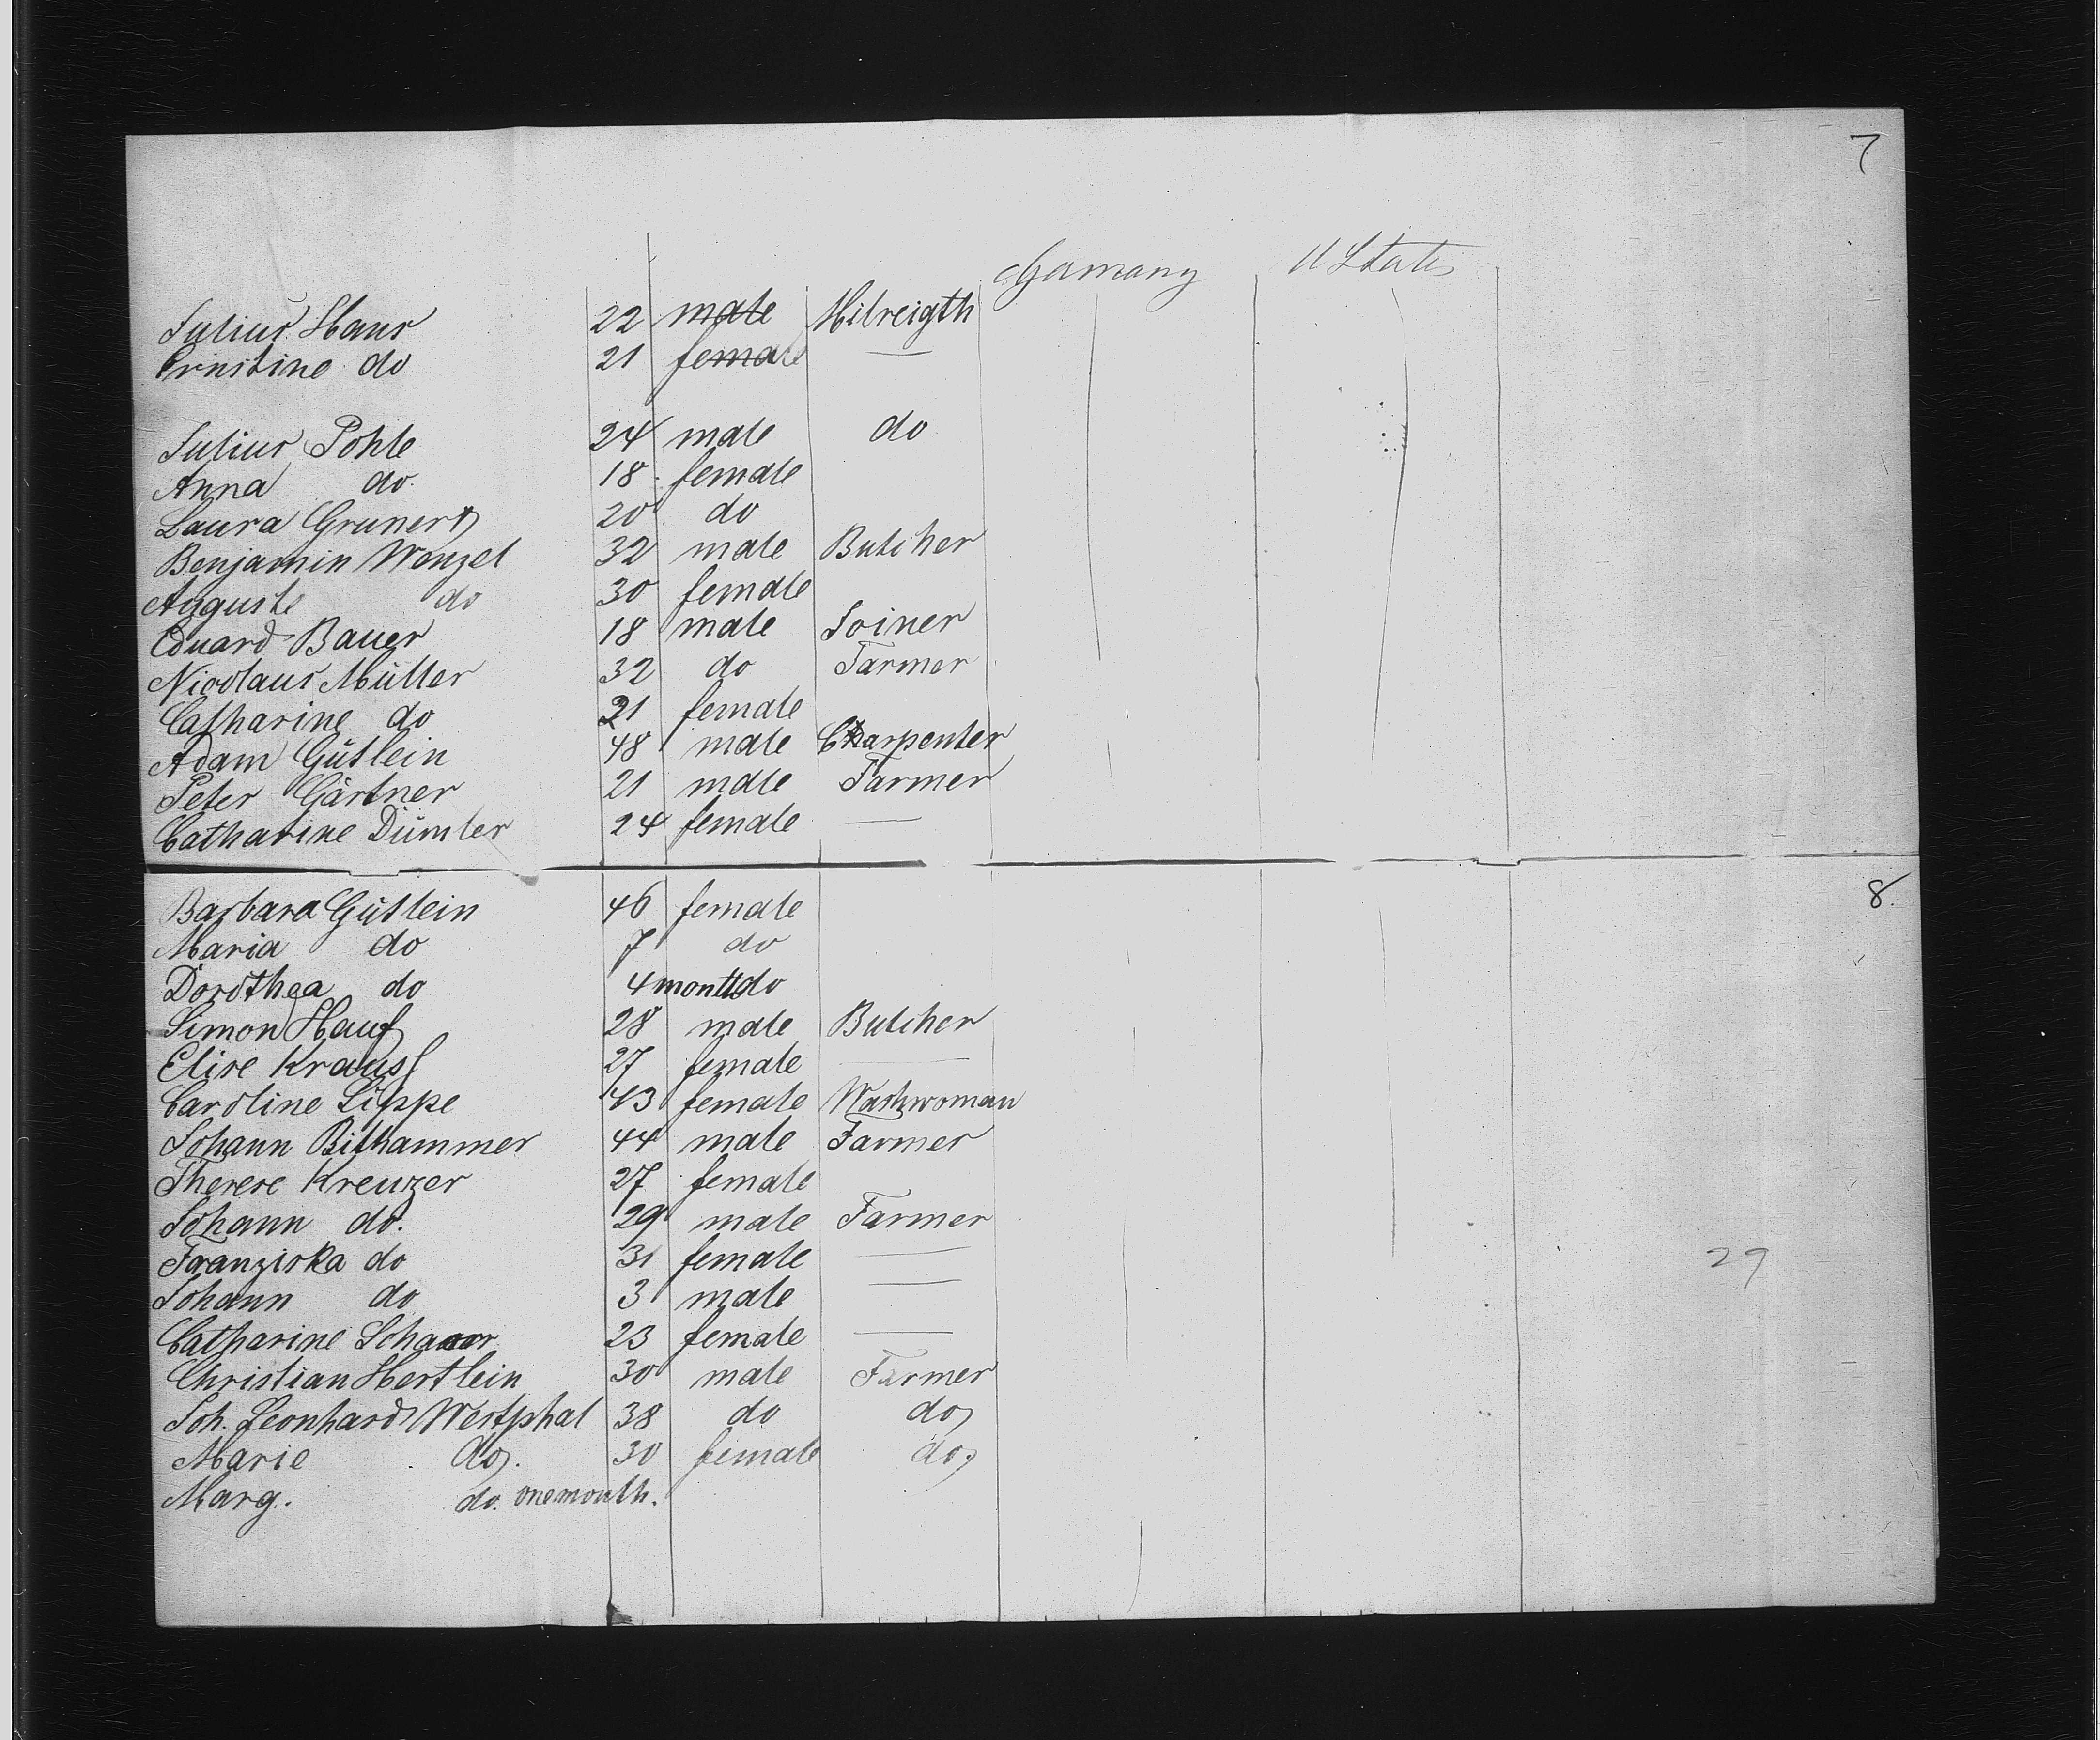 7
Germany U States
Julius Haus 22 male Milreigth
Ernstine do 21 female —
Julius Pohle 24 male do
Anna do. 18 female
Laura Grunert 20 do
Benjamin Wenzel 32 male Butcher
Auguste do 30 female
Eduard Bauer 18 male Joiner
Nicolaus Müller 32 do Farmer
Catharine do 21 female
Adam Gütlein 48 male Carpenter
Peter Gärtner 21 male Farmer
Catharine Dümler 24 female —
8.
Barbara Gütlein 46 female
Maria do 7 do
Dorothea do 4 month do
Simon Hauf 28 male Butcher
Elise Krauss 27 female —
Caroline Lippe 43 female Washwoman
Johann Bithammer 44 male Farmer
Therese Kreuzer 27 female
Johann do. 29 male Farmer
Franziska do 31 female —
29
Johann do 3 male —
Catharine 23 female —
Christian Hertlein 30 male Farmer
Joh. Leonhard Westphal 38 do do
Marie do. 30 female do.
Marg. do. one month.